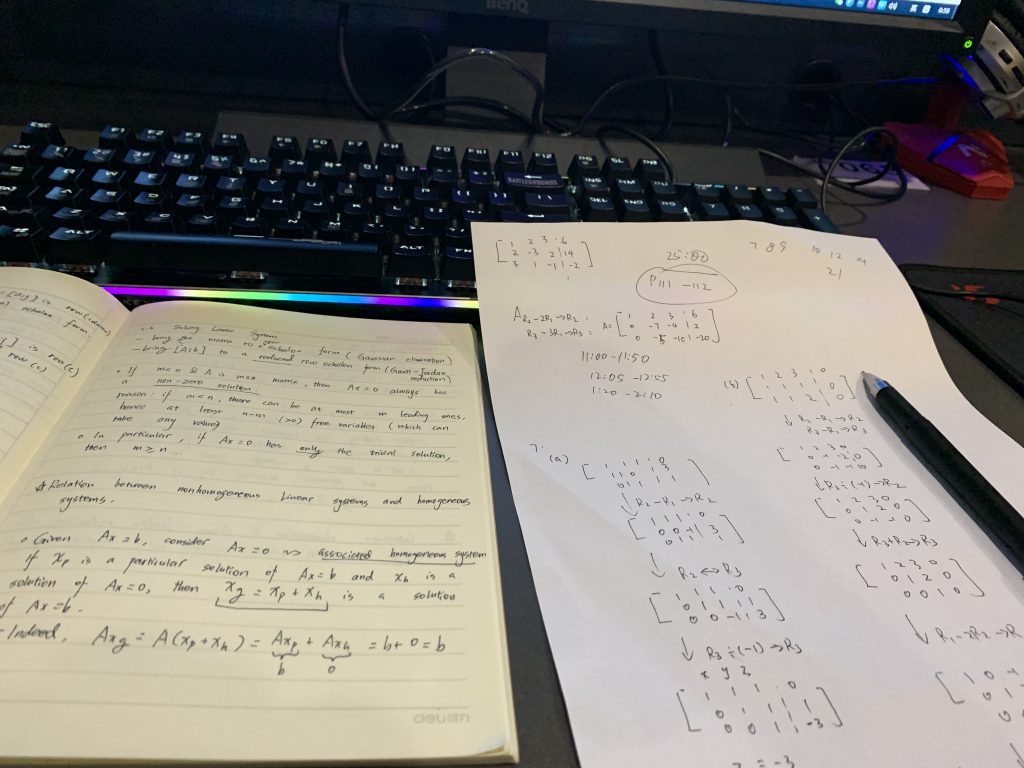 BenQ
0:58
ESC F1 F2 F3 F4 F5 F6 F7 F8 F9 F10 F11 F12
BATTLEGROUNDS
ALT
ALT
FN
2.2 Solving Linear System
- bring the matrix to row echelon form (Gaussian elimination)
- bring [A|b] to a reduced row echelon form (Gauss-Jordan
reduction)
If m<n & A is m×n matrix, then Ax=0 always has
a non-zero solution.
reason: if m<n, there can be at most m leading ones,
hence at least n-m (>0) free variables (which can
take any value)
In particular, if Ax=0 has only the trivial solution,
then m≥n.
☆ Relation between nonhomogeneous linear systems and homogeneous
systems.
Given Ax=b, consider Ax=0 ~> associated homogeneous system
If xp is a particular solution of Ax=b and xh is a
solution of Ax=0, then xg = xp + xh is a solution
of Ax=b.
- Indeed, Axg = A(xp+xh) = Axp + Axh = b+0 = b
b 0
delilan
1 2 3 6
2 -3 2 14
3 1 -1 -2
25:00
P111 -112
7 8 9 10 12 14
21
A R2-2R1→R2 :
R3-3R1→R3 : A=
1 2 3 6
0 -7 -4 2
0 -5 -10 -20
11:00-11:50
12:05-12:55
1:20-2:10
7.
(a)
1 1 1 0
1 1 0 3
0 1 1 1
↓ R2-R1→R2
1 1 1 0
0 0 -1 3
0 1 1 1
↓ R2↔R3
1 1 1 0
0 1 1 1
0 0 -1 3
↓ R3÷(-1)→R3
x y z
1 1 1 0
0 1 1 1
0 0 1 -3
z = -3
(b)
1 2 3 0
1 1 1 0
1 1 2 0
↓ R2-R1→R2
R3-R1→R3
1 2 3 0
0 -1 -2 0
0 -1 -1 0
↓ R2÷(-1)→R2
1 2 3 0
0 1 2 0
0 -1 -1 0
↓ R3+R2→R3
1 2 3 0
0 1 2 0
0 0 1 0
↓ R1-2R2→R
1 0 -1
0 1
0 0